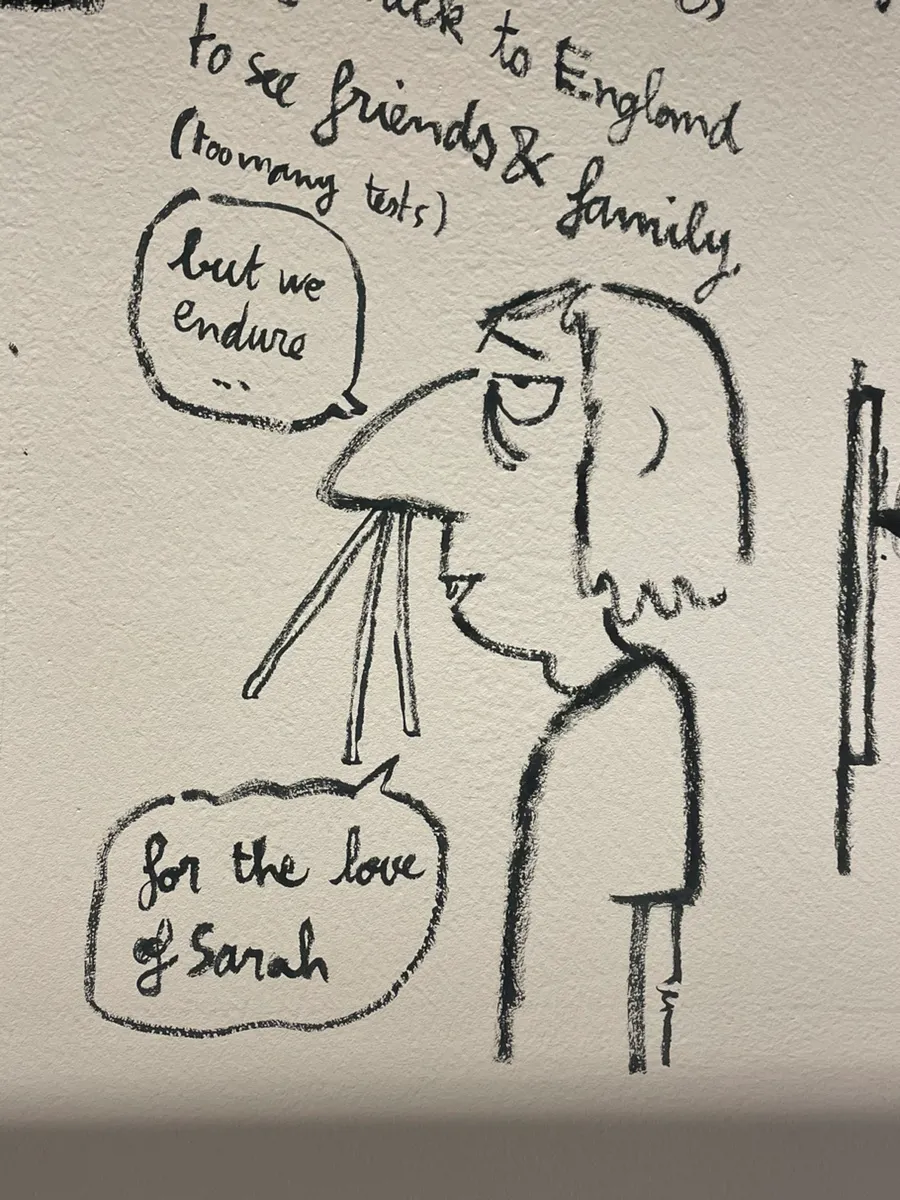 to England
to see friends & family
(too many tests)
but we
endure
...
for the love
of Sarah